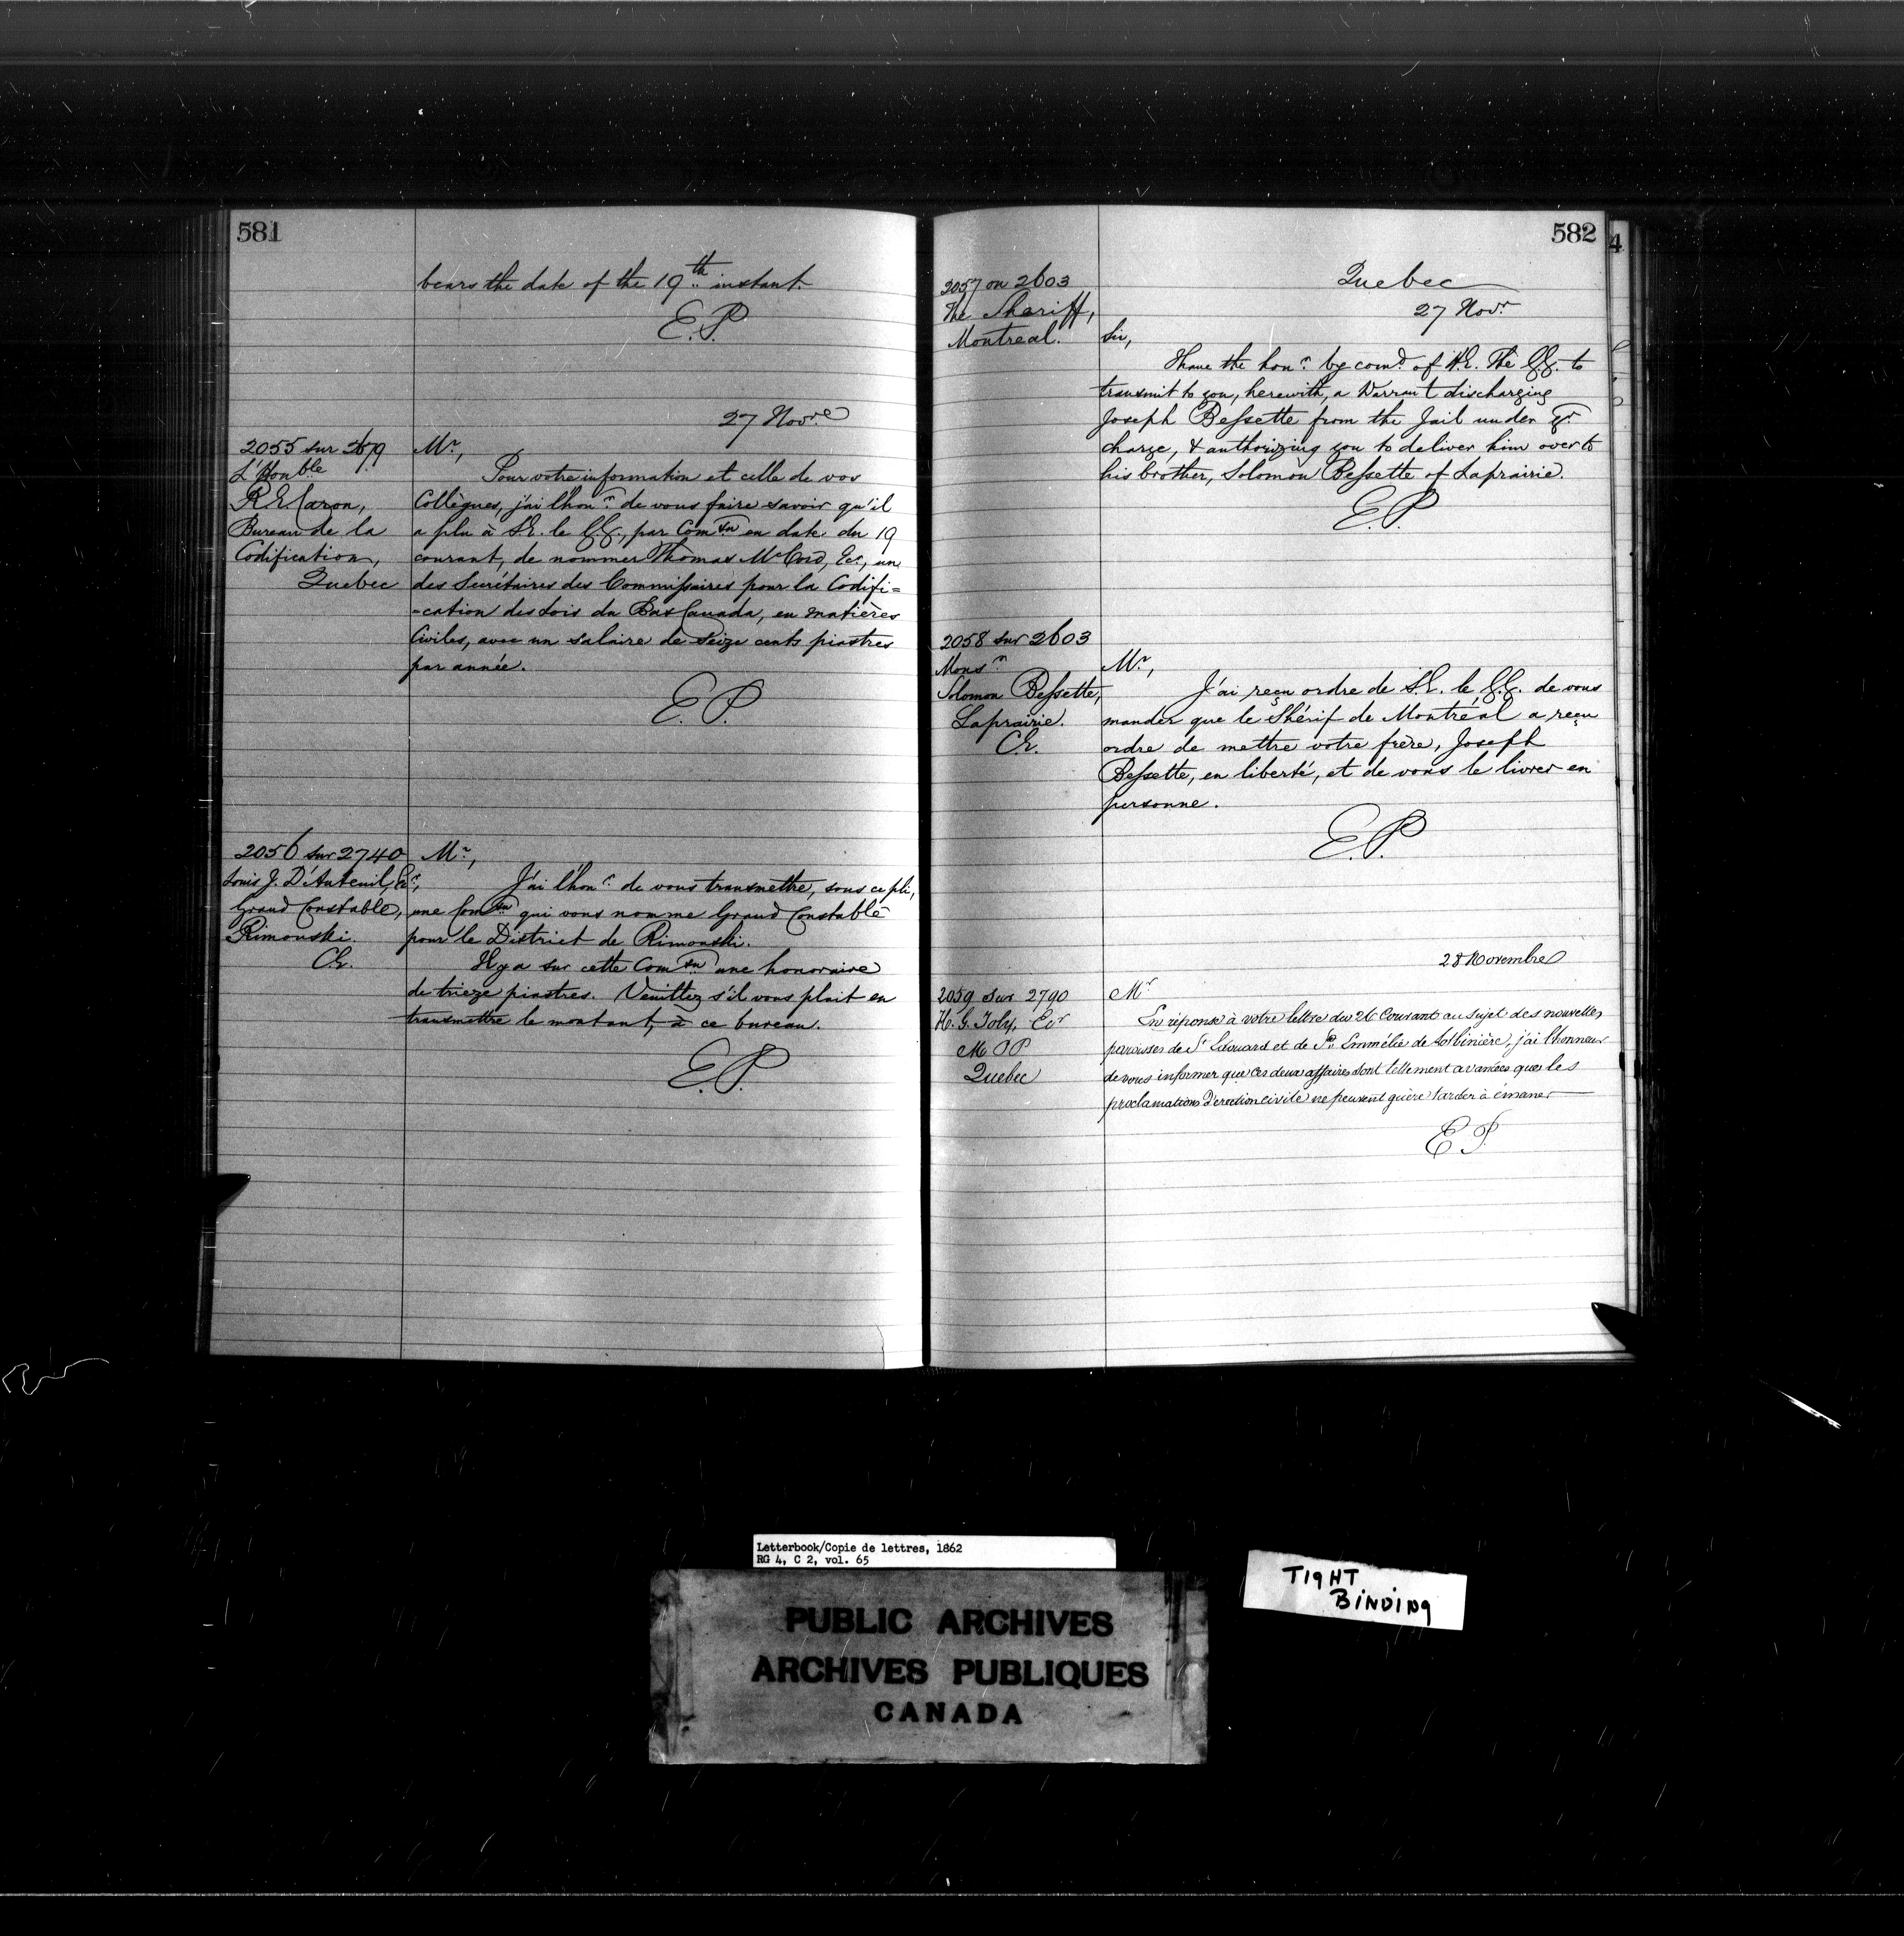 581
bears the date of the 19th instant.
E.P.
27 Novre
2055 sur 2679
L'Honble
R. E. Caron,
Bureau de la
Codification,
Quebec
Mr,
Pour votre information et celle de vos
Collègues, j'ai l'honr de vous faire savoir qu'il
a plu à S.E. le G.G., par Comsn en date du 19
courant, de nommer Thomas McCord, Ecr, un
des Secrétaires des Commissaires pour la Codifi=
-cation des Lois du Bas Canada, en matières
Civiles, avec un salaire de seize cents piastres
par année.
E.P.
2056 sur 2740
Louis J. D'Auteuil, Ecr,
Grand Constable,
Rimouski.
Ch.
Mr,
J'ai l'honr de vous transmettre, sous ce pli,
une Comsn qui vous nomme Grand Constable
pour le District de Rimouski.
Il y a sur cette Comsn une honoraire
de trieze piastres. Veuillez s'il vous plait en
transmettre le montant, à ce bureau.
E.P.
582
4
Quebec
27 Novr
2057 on 2603
The Sheriff,
Montreal.
Sir,
I have the honr by comd of H.E. The G.G. to
transmit to you, herewith, a Warrant discharging
Joseph Bessette from the Jail under yr
charge, & authorizing you to deliver him over to
his brother, Solomon Bessette of Laprairie.
E.P.
2058 sur 2603
Monsr
Solomon Bessette,
Laprairie.
Ch.
Mr,
J'ai reçu ordre de S.E. le G.G. de vous
mander que le Shérif de Montréal a reçu
ordre de mettre votre frère, Joseph
Bessette, en liberté, et de vous le livrer en
personne.
E.P.
28 Novembre
2059 sur 2790
H. G. Joly, Ecr
M P P
Quebec
Mr
En réponse à votre lettre du 26 Courant au sujet des nouvelles
paroisses de St Edouard et de Ste Emmélie de Lotbinière, j'ai l'honneur
de vous informer que ces deux affaires sont tellement avancées que les
proclamations d'erection civile ne peuvent guère tarder à émaner
E P.
Letterbook/Copie de lettres, 1862
RG 4, C 2, vol. 65
PUBLIC ARCHIVES
ARCHIVES PUBLIQUES
CANADA
TIGHT
BINDING